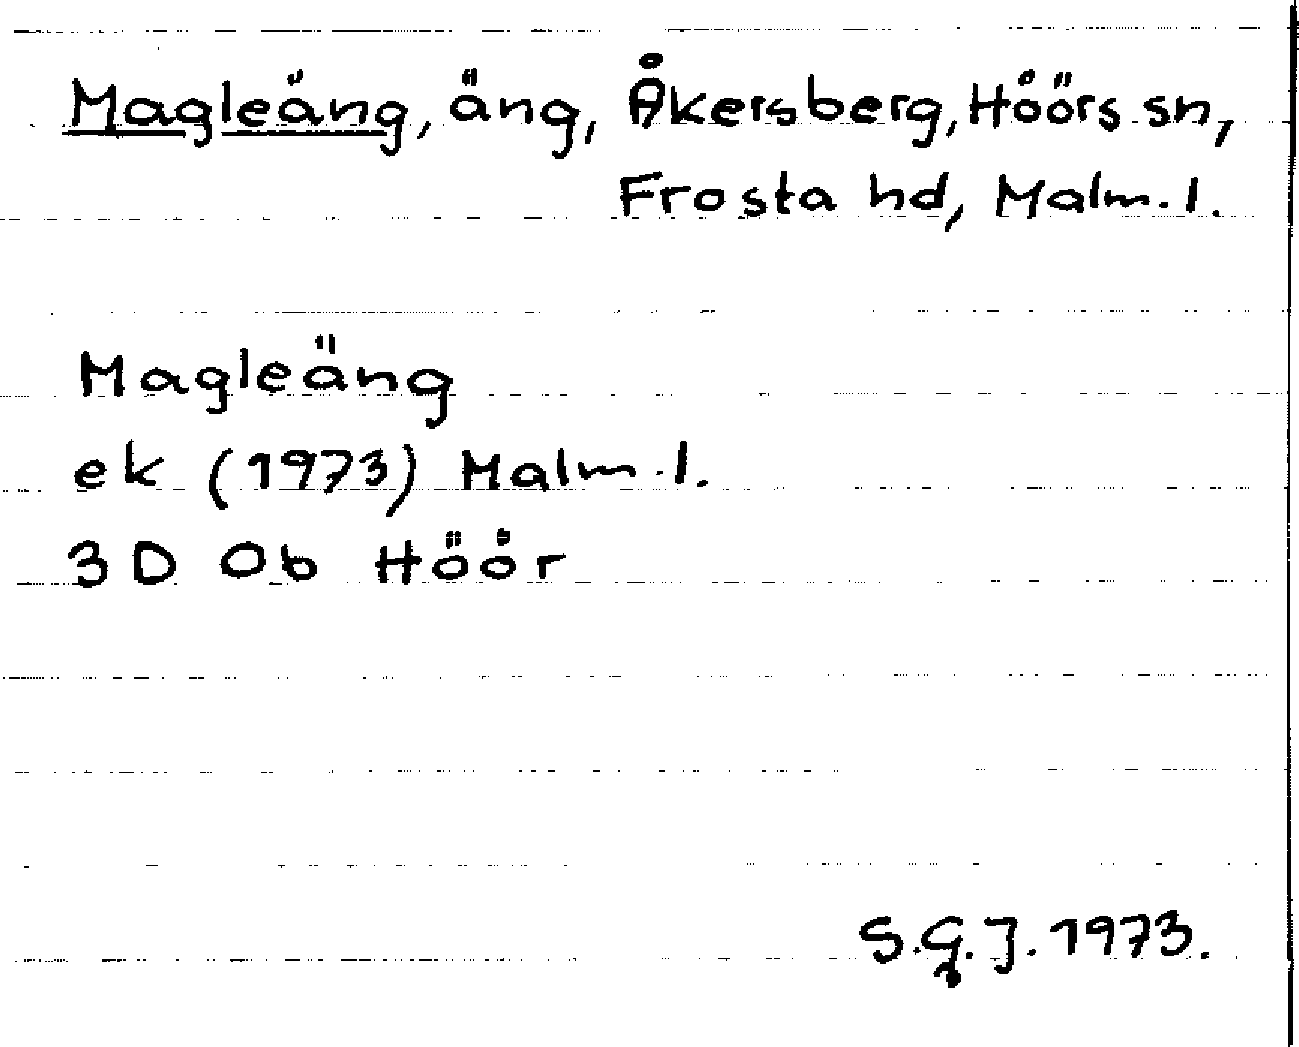 Magleäng, äng, Åkersberg, Höörs sn,
Frosta hd, Malm. l.
Magleäng
ek (1973) Malm. l.
3D 0b Höör
S.G.J. 1973.